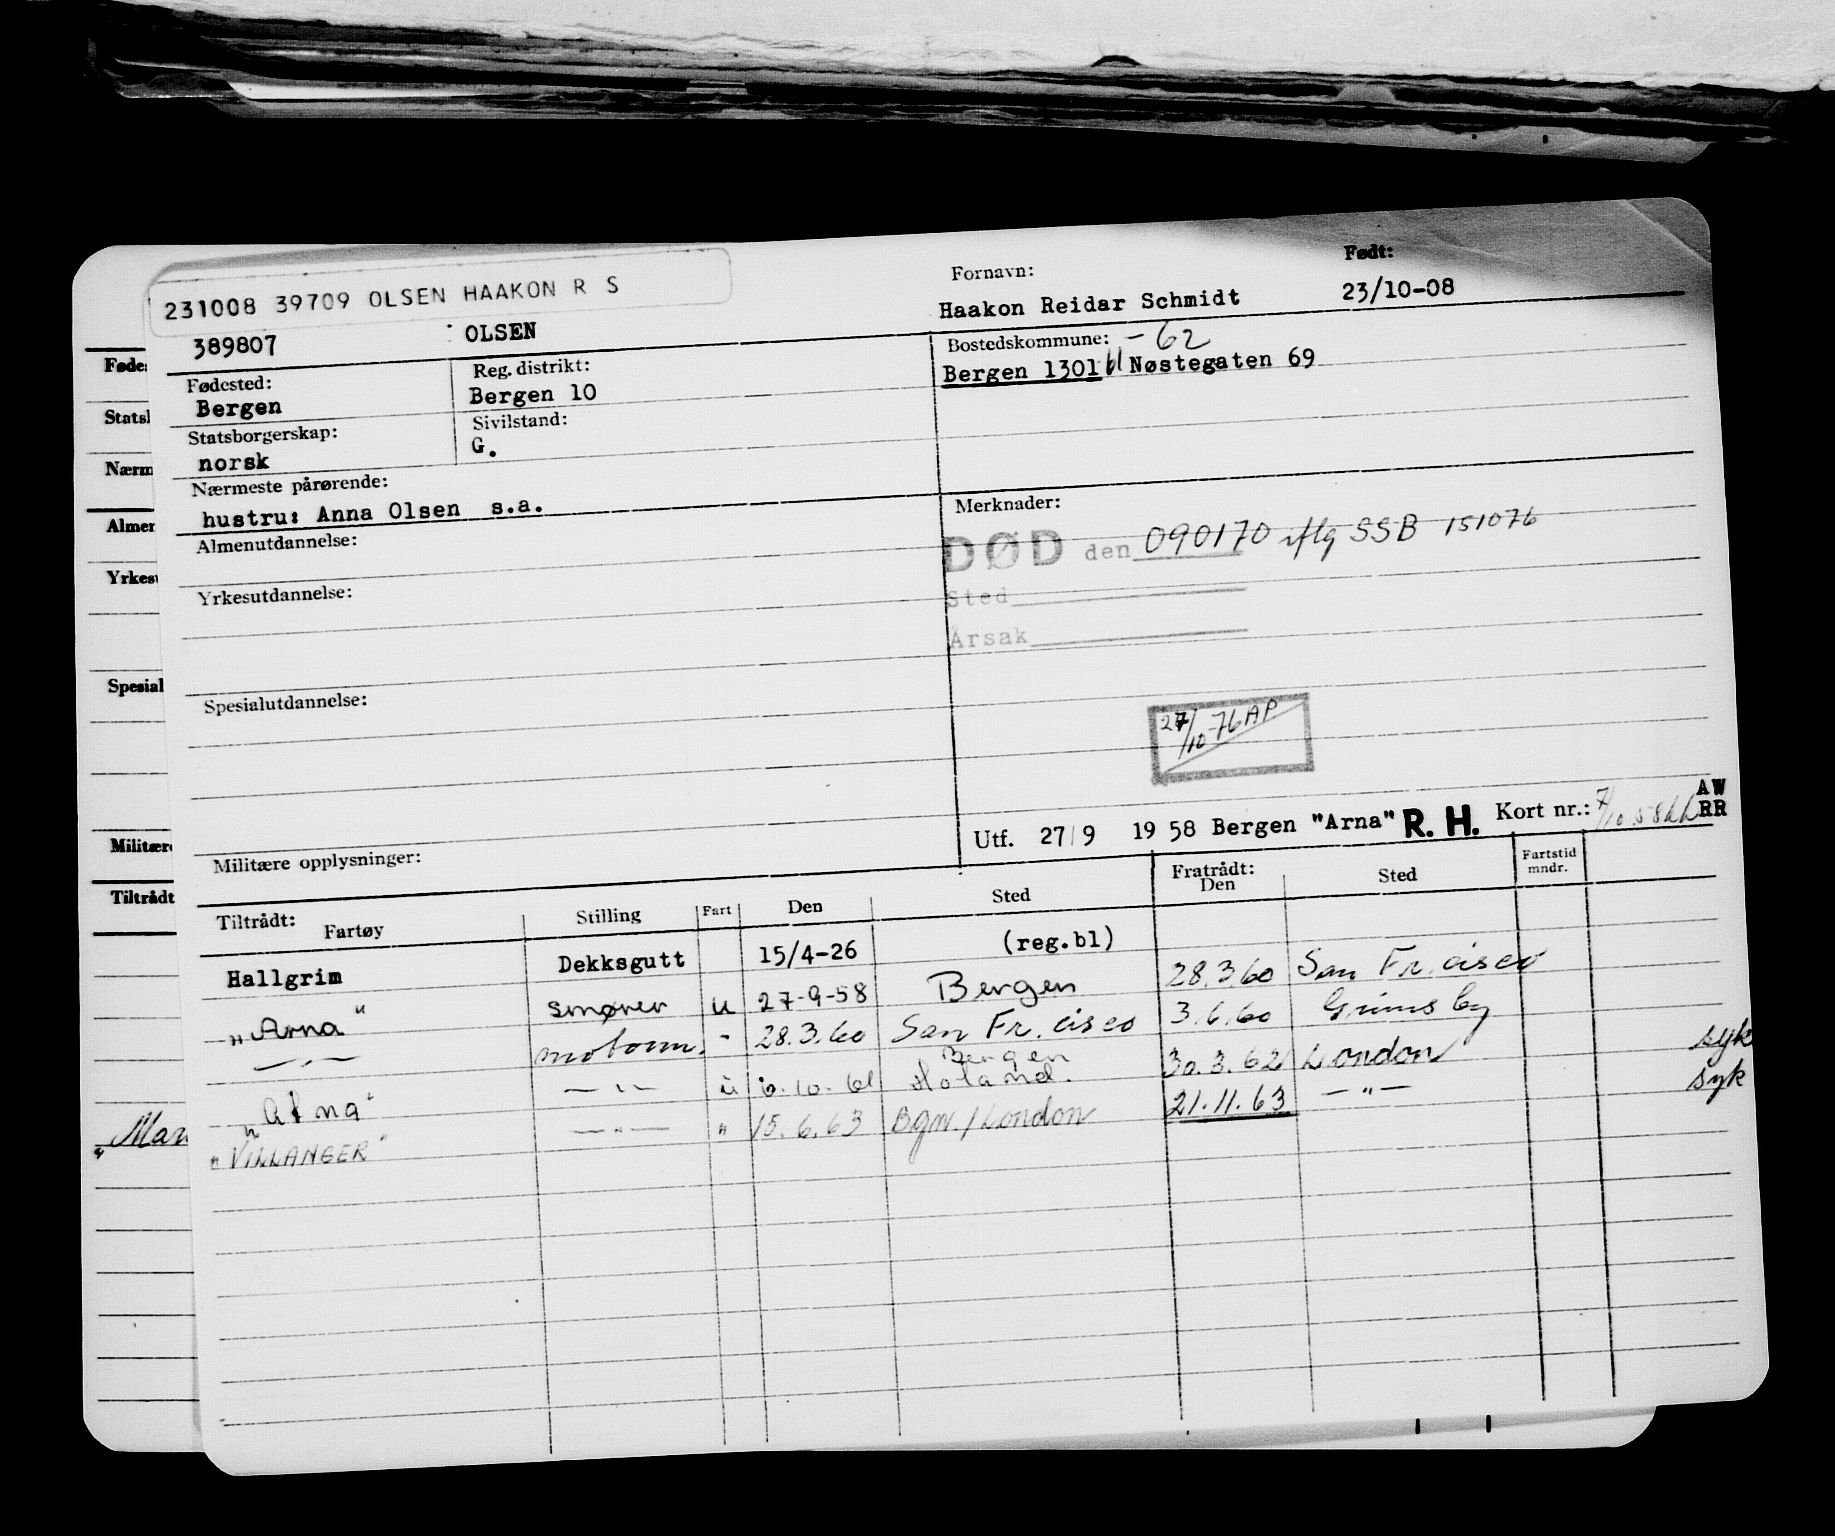 231008 39709 OLSEN HAAKON R S
Fornavn:
Født:
389807
OLSEN
Haakon Reidar Schmidt
23/10-08
Fødested:
Reg. distrikt:
Bostedskommune: - 62
Bergen
Bergen 10
Bergen 1301 Nøstegaten 69
Statsborgerskap:
Sivilstand:
norsk
G.
Nærmeste pårørende:
hustru: Anna Olsen s.a.
Merknader:
Almenutdannelse:
DØD den 090170 iflg SSB 151076
Yrkesutdannelse:
Sted
Årsak
Spesialutdannelse:
27/10-76 AP
Militære opplysninger:
Utf. 27/9 1958 Bergen "Arna" R. H. Kort nr.: 7/10.58
AW
RR
Tiltrådt:
Fartøy
Stilling
Fart
Den
Sted
Fratrådt:
Den
Sted
Fartstid
mndr.
Hallgrim Dekksgutt 15/4-26 (reg.bl)
"Arna" smører u 27-9-58 Bergen 28.3.60 San Fr.cisco
— " — motorm. - 28.3.60 San Fr.cisco 3.6.60 Grimsby
"Arna" — " — u 6.10.61 Bergen 30.3.62 London syk
"VILLANGER" — " — " 15.6.63 Bgn./London 21.11.63 — " — syk
Fødes
Statsl
Nærm
Almer
Yrkesu
Spesial
Militære
Tiltrådt
"Mar